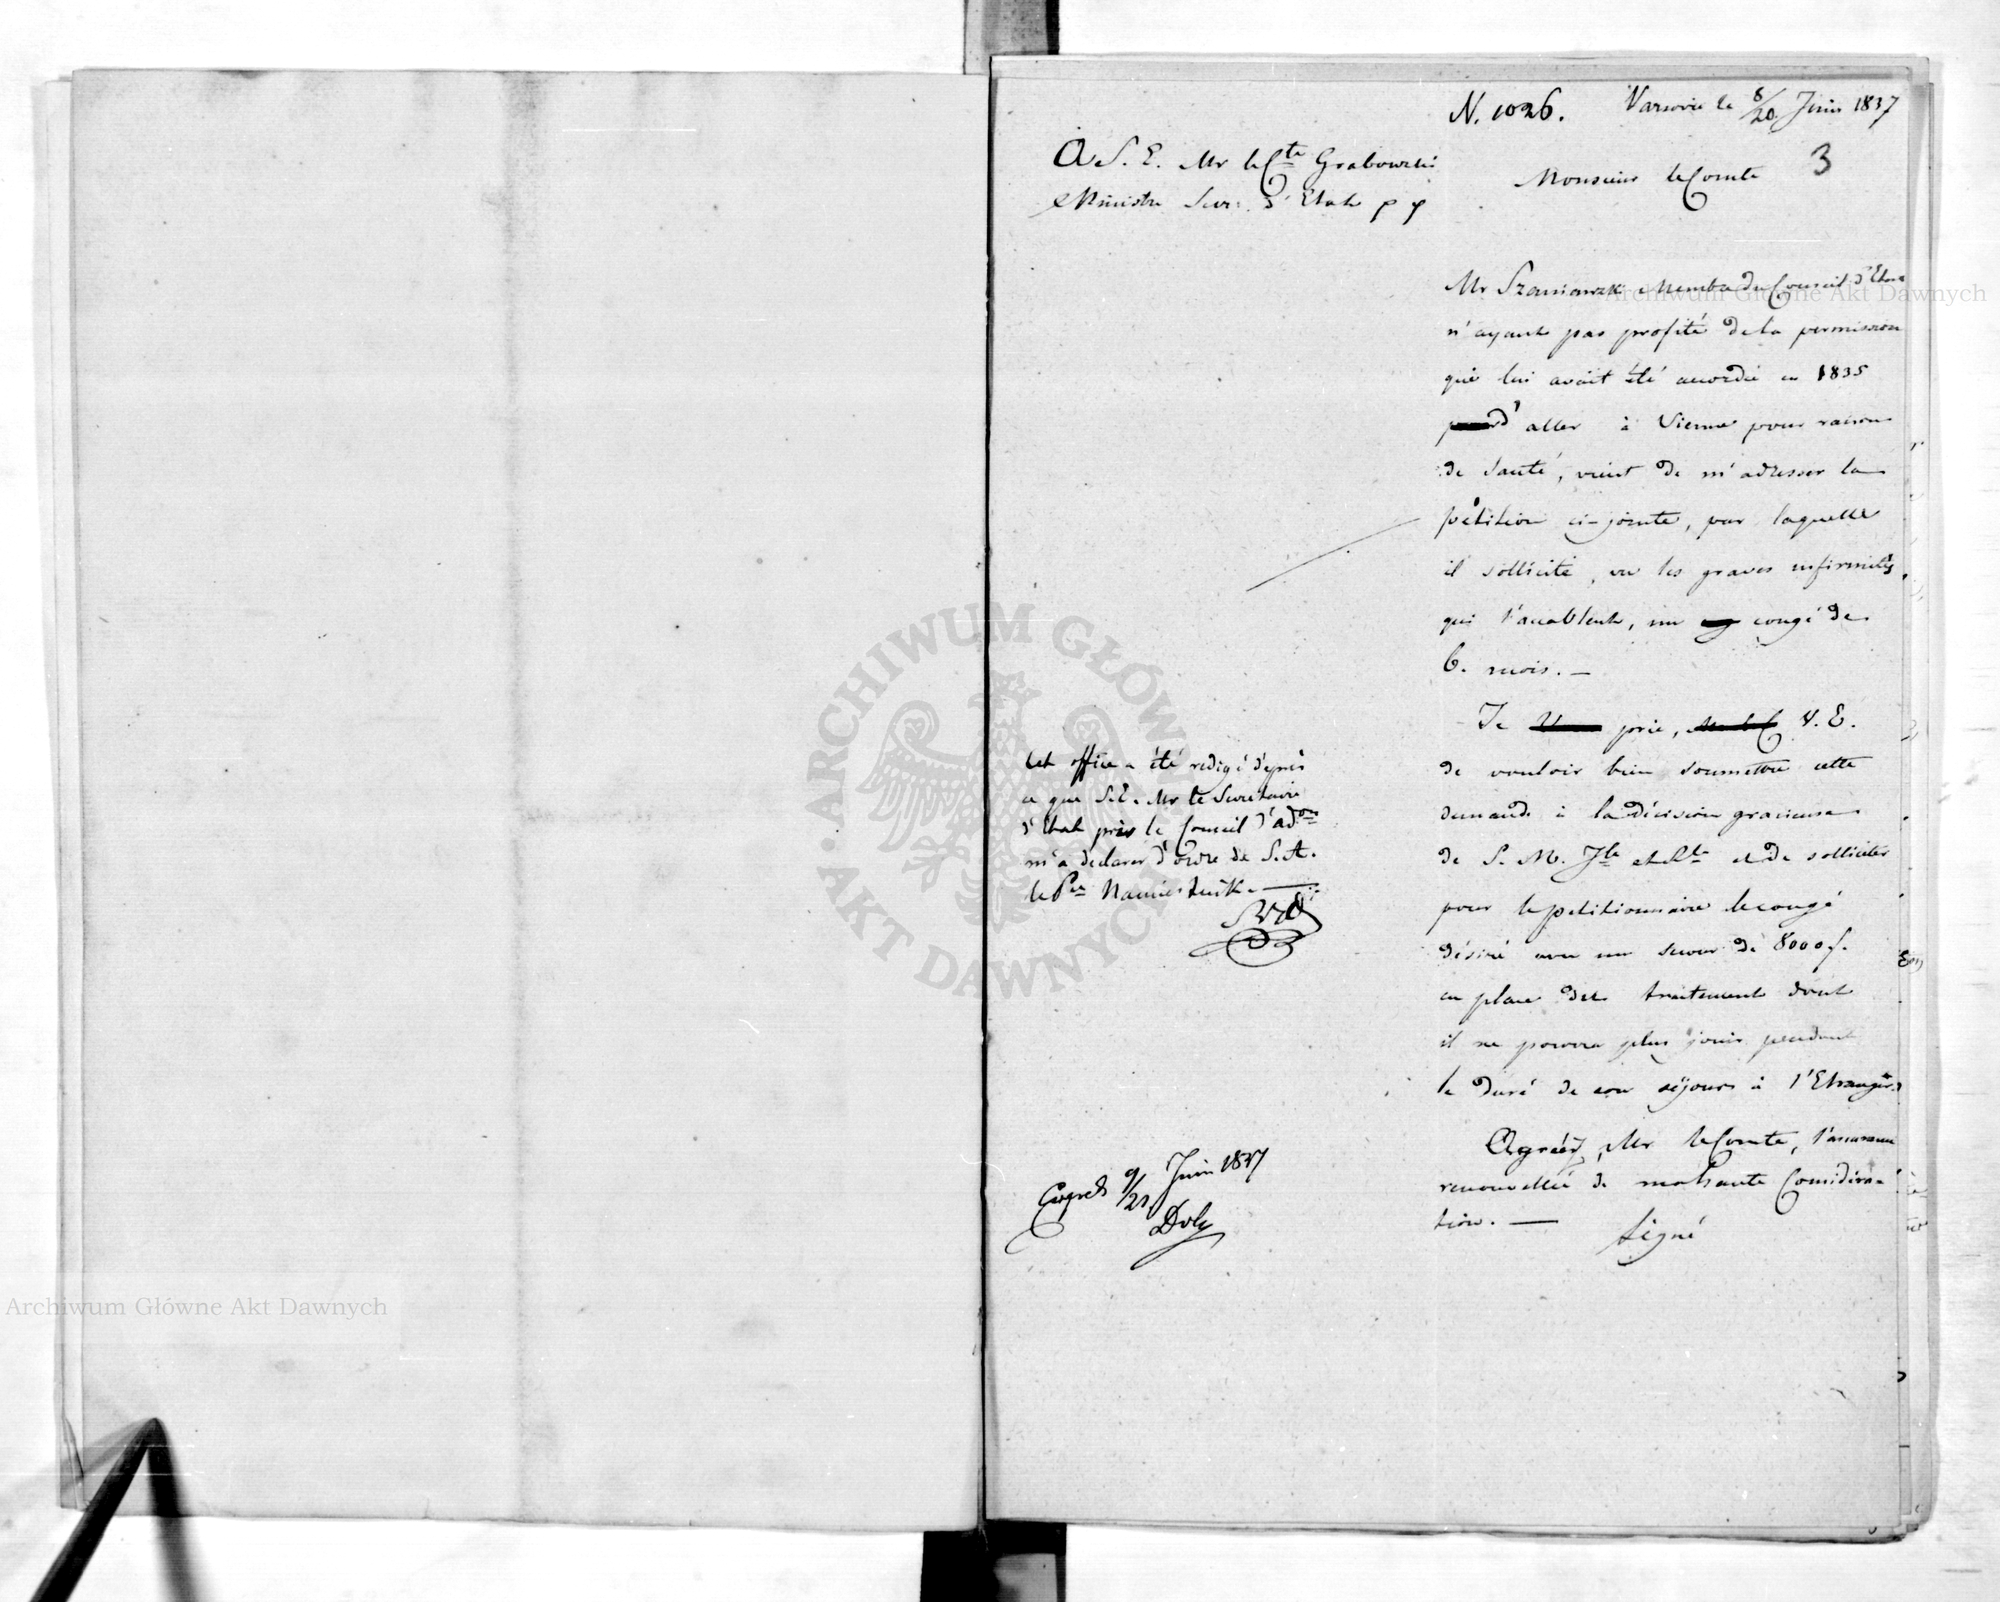 N. 1026. Varsovie le 8/20 Juin 1837
3
A S. E. Mr le Cte Grabowski
Ministre Secr. d'Etat p p
Monsieur le Comte
Mr Szaniawski Membre du Conseil d'Etat
n'ayant pas profité de la permission
qui lui avait été accordée en 1835
d'aller à Vienne pour raison
de santé, vient de m'adresser la
pétition ci-jointe, par laquelle
il sollicite, vu les graves infirmités
qui l'accablent, un congé de
6. mois. —
Je prie, V. E.
de vouloir bien soumettre cette
demande à la décision gracieuse
de S. M. Jle et Rle et de solliciter
pour le petitionnaire le congé
désiré avec un secour de 8000 f.
en place du traitement dont
il ne pourra plus jouir pendant
la duré de son séjours à l'Etranger
Agréez, Mr le Comte, l'assurance
renouvellée de ma haute Considéra-
tion. —
Signé
Cet office a été redigé d'après
ce que S.E. Mr le Secretaire
d'Etat près le Conseil d'adon
m'a déclarer d'ordre de S. A.
le Pce Namiestnik. —
Exped 9/21 Juin 1837
ARCHIWUM GŁÓWNE
AKT DAWNYCH
Archiwum Główne Akt Dawnych
Archiwum Główne Akt Dawnych